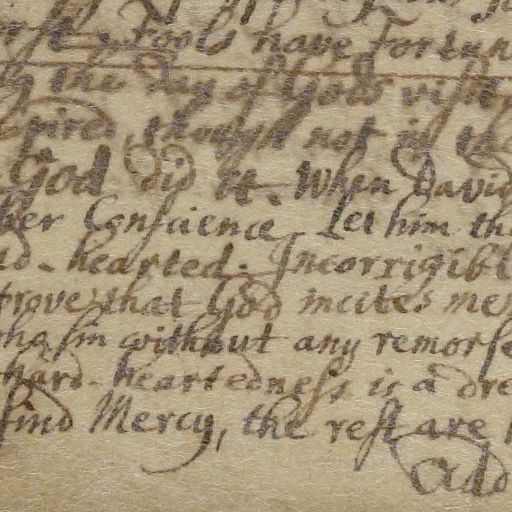 Fools have Fortun
the day of Gods visit
spired, though not in the
God did it. When David
her Conscience. Let him tha
d-hearted. Incorrigibl
prove, that God incites men
who sin without any remorse
hard-heartedness is a dre
find Mercy, the rest are h
Ado